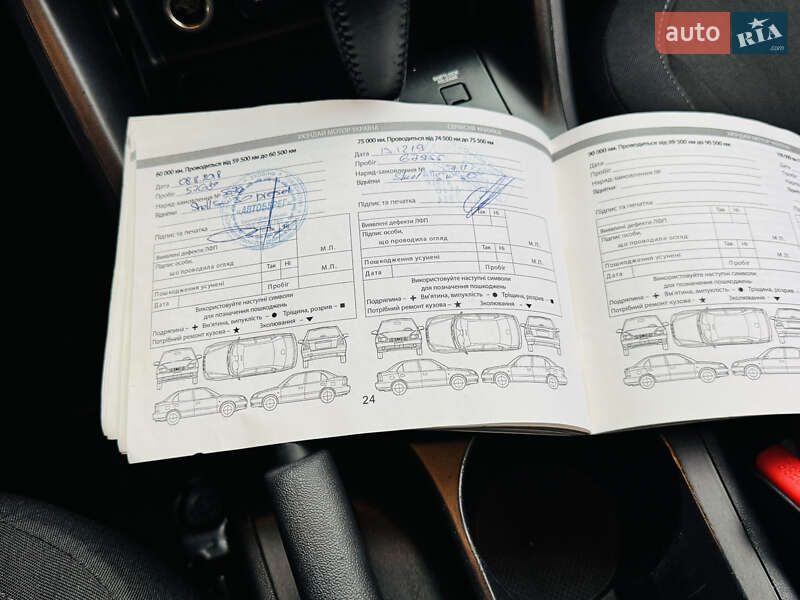 auto RIA .com
SHIFT LOCK RELEASE
ХЮНДАЙ МОТОР УКРАЇНА
СЕРВІСНА КНИЖКА
60 000 км. Проводиться від 59 500 км до 60 500 км
Дата
Пробіг
Наряд-замовлення №
Відмітки
«АВТОБЕРЕГ»
Підпис та печатка
Так Ні
Виявлені дефекти ЛФП
Підпис особи,
що проводила огляд
М.П.
Так Ні
Пошкодження усунені
Пробіг
Дата
Використовуйте наступні символи
для позначення пошкоджень
Подряпина – + Вм'ятина, випуклість – ● Тріщина, розрив – ■
Потрібний ремонт кузова – ★ Зколювання – ▼
75 000 км. Проводиться від 74 500 км до 75 500 км
Дата 13.12.19
Пробіг
Наряд-замовлення №
Відмітки Shell
Підпис та печатка
Так Ні
Виявлені дефекти ЛФП
Підпис особи,
що проводила огляд
М.П.
Так Ні
Пошкодження усунені
Дата
Пробіг
Використовуйте наступні символи
для позначення пошкоджень
Подряпина – + Вм'ятина, випуклість – ● Тріщина, розрив – ■
Потрібний ремонт кузова – ★ Зколювання – ▼
24
90 000 км. Проводиться від 89 500 км до 90 500 км
Дата
Пробіг
Наряд-замовлення №
Відмітки
Підпис та печатка
Так Ні
Виявлені дефекти ЛФП
Підпис особи,
що проводила огляд
М.П.
Так Ні
Пошкодження усунені
Дата
Пробіг
Використовуйте наступні символи
для позначення пошкоджень
Подряпина – + Вм'ятина, випуклість – ● Тріщина, розрив – ■
Потрібний ремонт кузова – ★ Зколювання – ▼